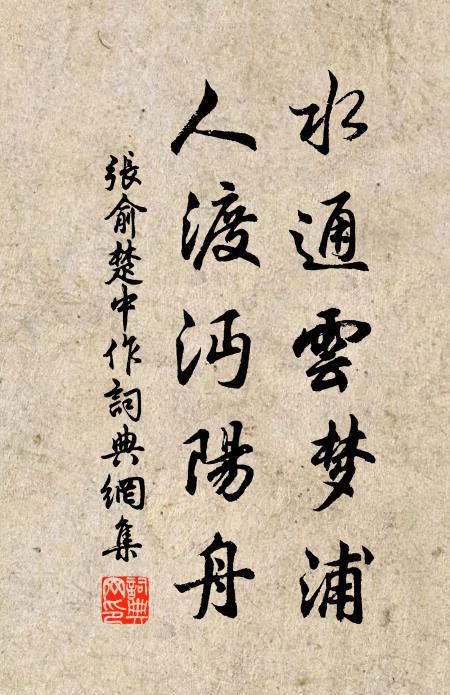 水通雲梦浦
人渡沔陽舟
張俞楚中作詞典網集
詞典網印